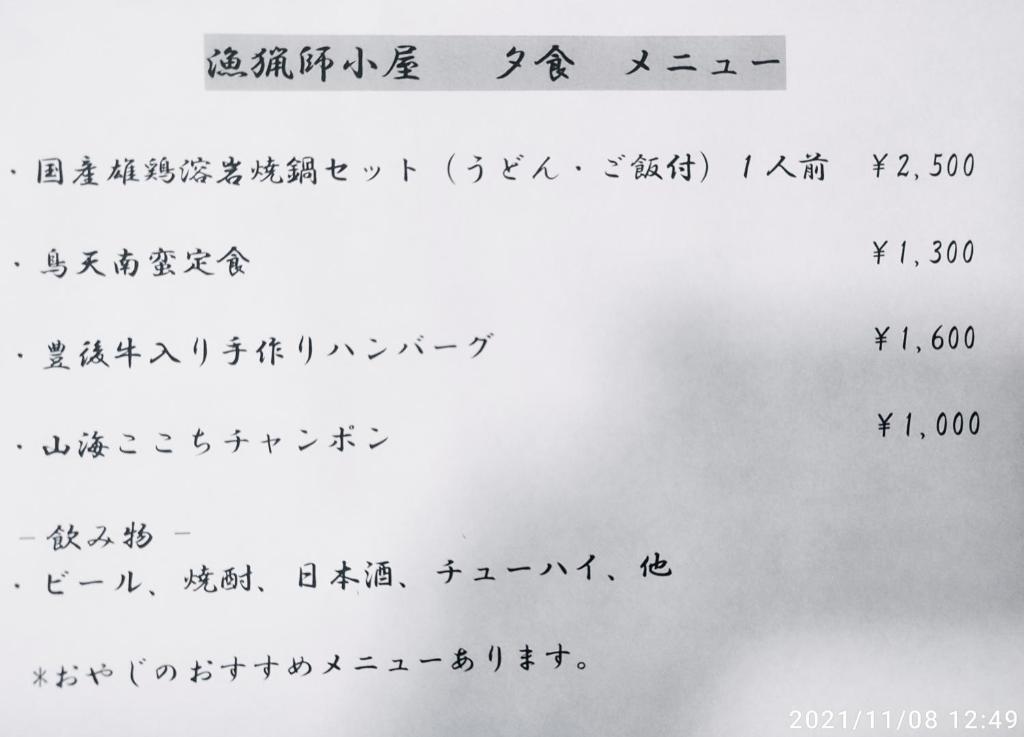 漁猟師小屋　夕食　メニュー
・国産雄鶏溶岩焼鍋セット（うどん・ご飯付）１人前　￥2,500
・鳥天南蛮定食　￥1,300
・豊後牛入り手作りハンバーグ　￥1,600
・山海ここちチャンポン　￥1,000
－飲み物－
・ビール、焼酎、日本酒、チューハイ、他
*おやじのおすすめメニューあります。
2021/11/08 12:49